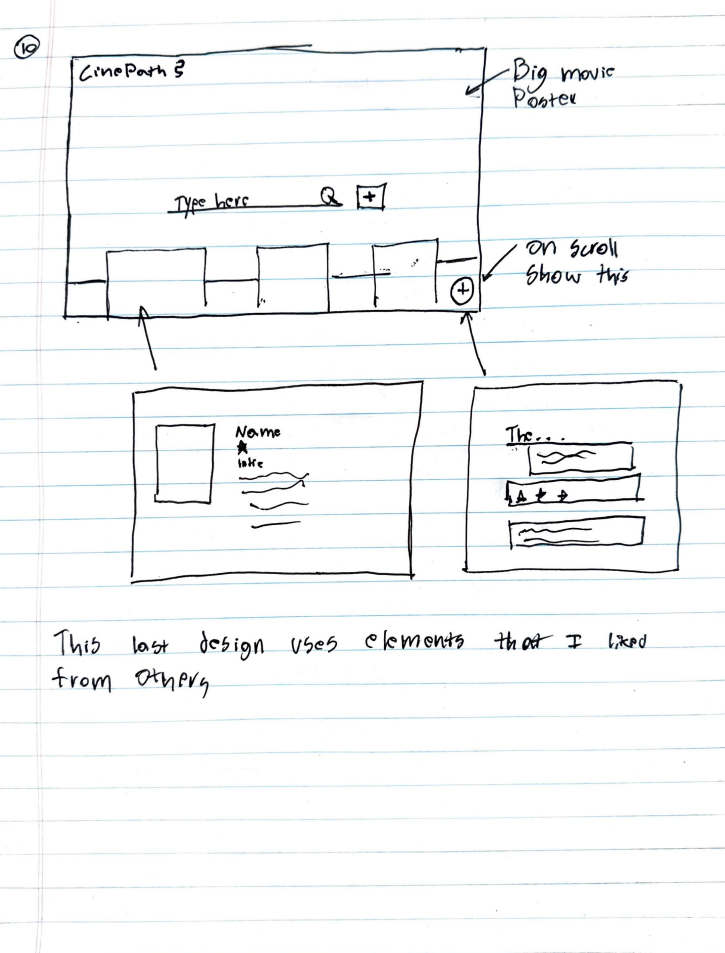 10
CinePath
Big movie
Poster
Type here
+
on scroll
show this
+
Name
The...
This last design uses elements that I liked
from others